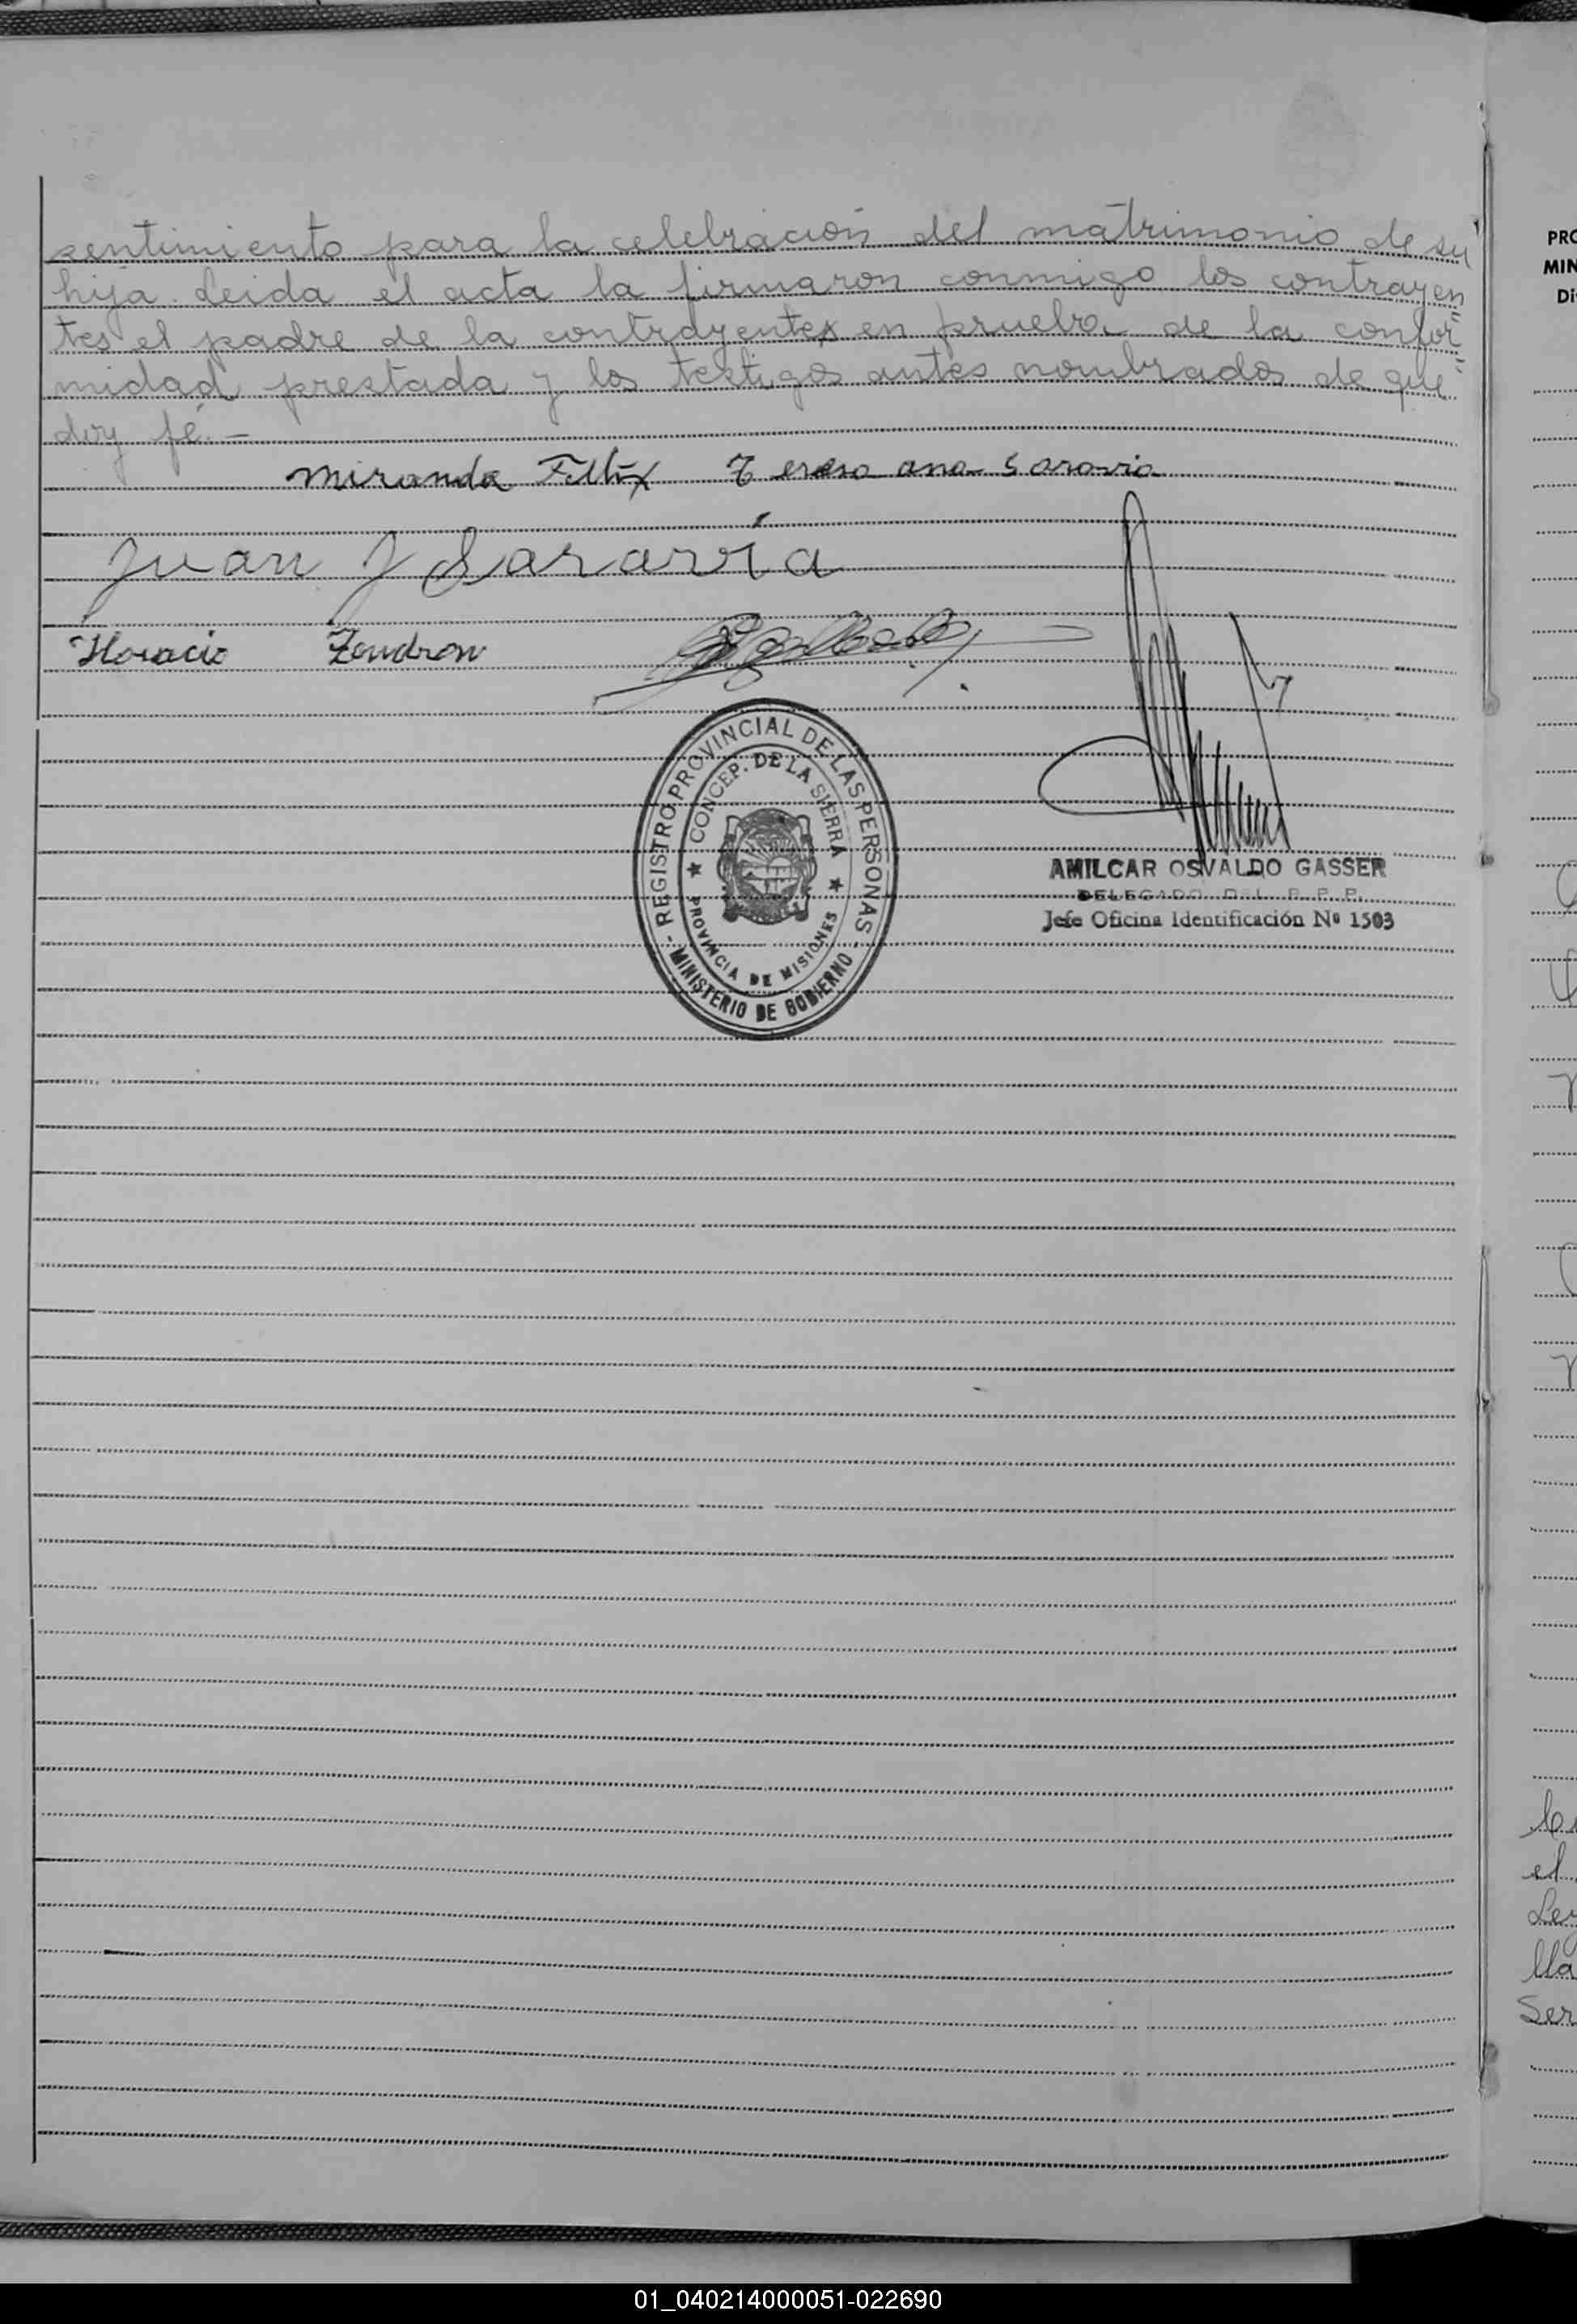 sentimiento para la celebración del matrimonio de su
hija. Leida el acta la firmaron conmigo los contrayen=
tes el padre de la contrayentes en prueba de la confor=
midad prestada y los testigos antes nombrados de que
doy fé.-
Miranda Felix Teresa ana Saravia
Juan J Saravia
Horacio Zendron
- REGISTRO PROVINCIAL DE LAS PERSONAS -
MINISTERIO DE GOBIERNO
★ CONCEP. DE LA SIERRA ★
PROVINCIA DE MISIONES
AMILCAR OSVALDO GASSER
DELEGADO DEL R.P.P.
Jefe Oficina Identificación Nº 1503
PRO
MIN
Di
el
Ley
lla
Ser
01_040214000051-022690